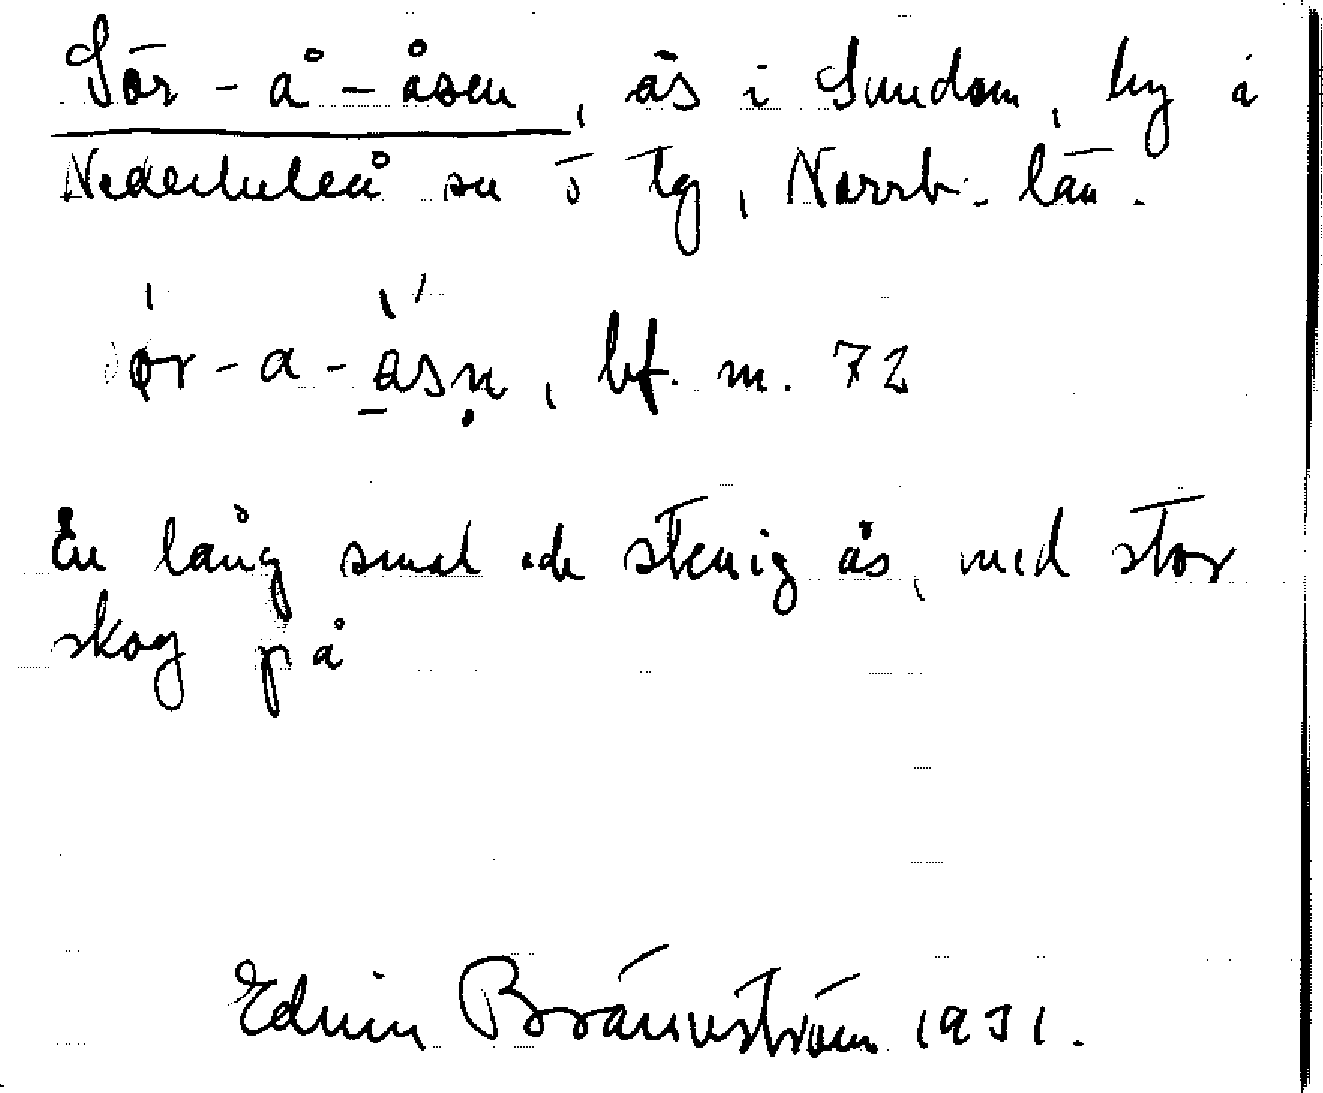 Sör-å-åsen, ås i Sundom, by i
Nederluleå sn ö tg, Norrb. län.
bf. m. 72
En lång smal och stenig ås, med stor
skog på
Edvin Brännström 1931.